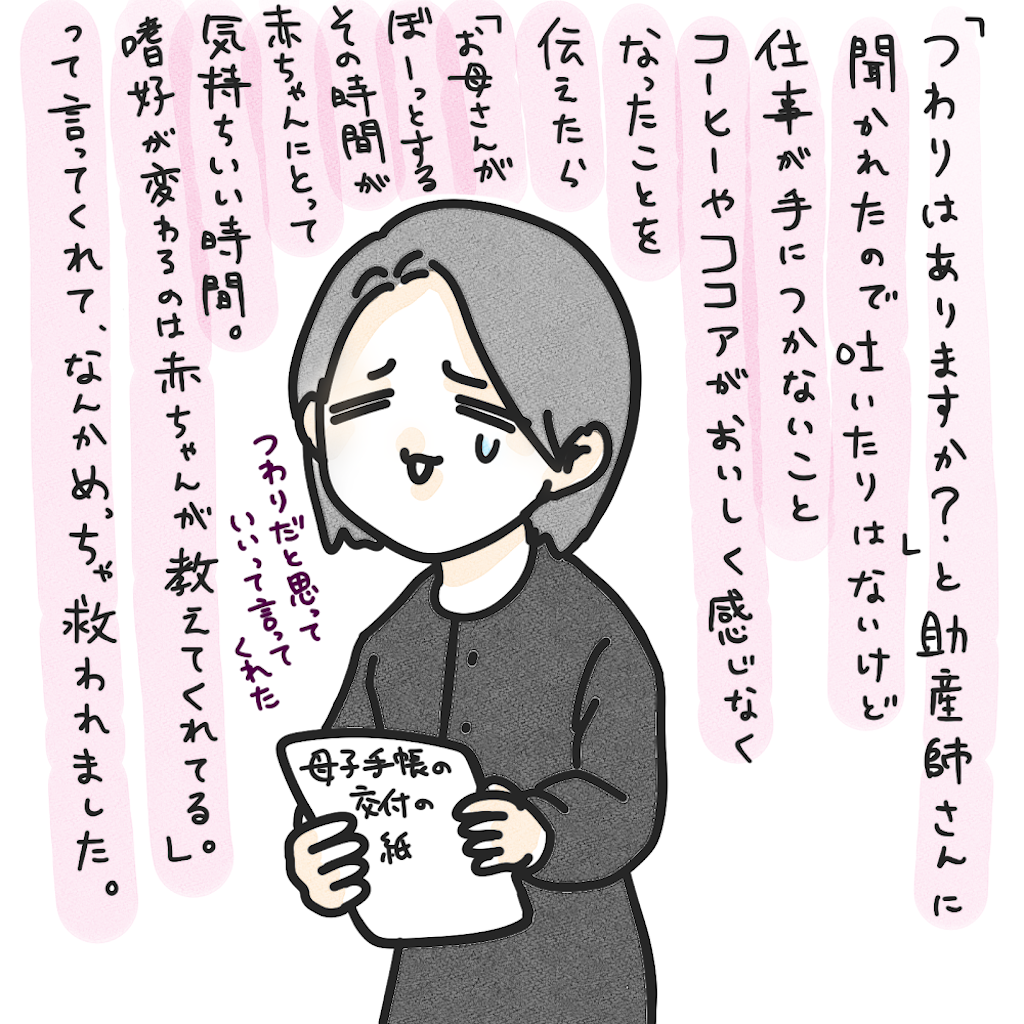 「つわりはありますか？」と助産師さんに
聞かれたので吐いたりはないけど
仕事が手につかないこと
コーヒーやココアがおいしく感じなく
なったことを
伝えたら
「お母さんが
ぼーっとする
その時間が
赤ちゃんにとって
気持ちいい時間。
嗜好が変わるのは赤ちゃんが教えてくれてる」。
って言ってくれて、なんかめっちゃ救われました。
つわりだと思って
いいって言って
くれた
母子手帳の
交付の
紙